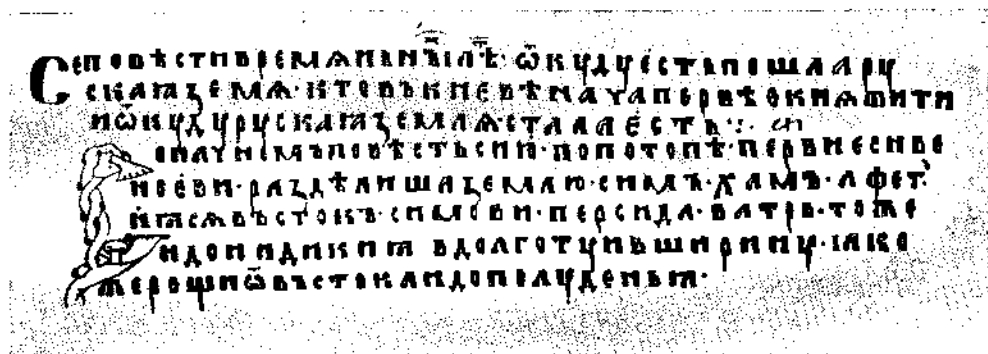 Се повѣсти времѧньнꙑⷯ лѣⷮ· ѿкꙋдꙋ есть пошла рꙋ
скаꙗ земѧ· кто въ киевѣ нача первѣе кнѧжити
и ѿкꙋдꙋ рꙋскаꙗ землѧ стала есть·:·
о начнемъ повѣсть сию· по потопѣ· первие снве
ноеви· раздѣлиша землю· симъ· хамъ· афет·
и ꙗсѧ въстокъ· симови· персида· ватрь· тоже
и до индикиꙗ в долготꙋ и в ширинꙋ· ꙗко
же рощи ѿ въстока и до полꙋденьꙗ·